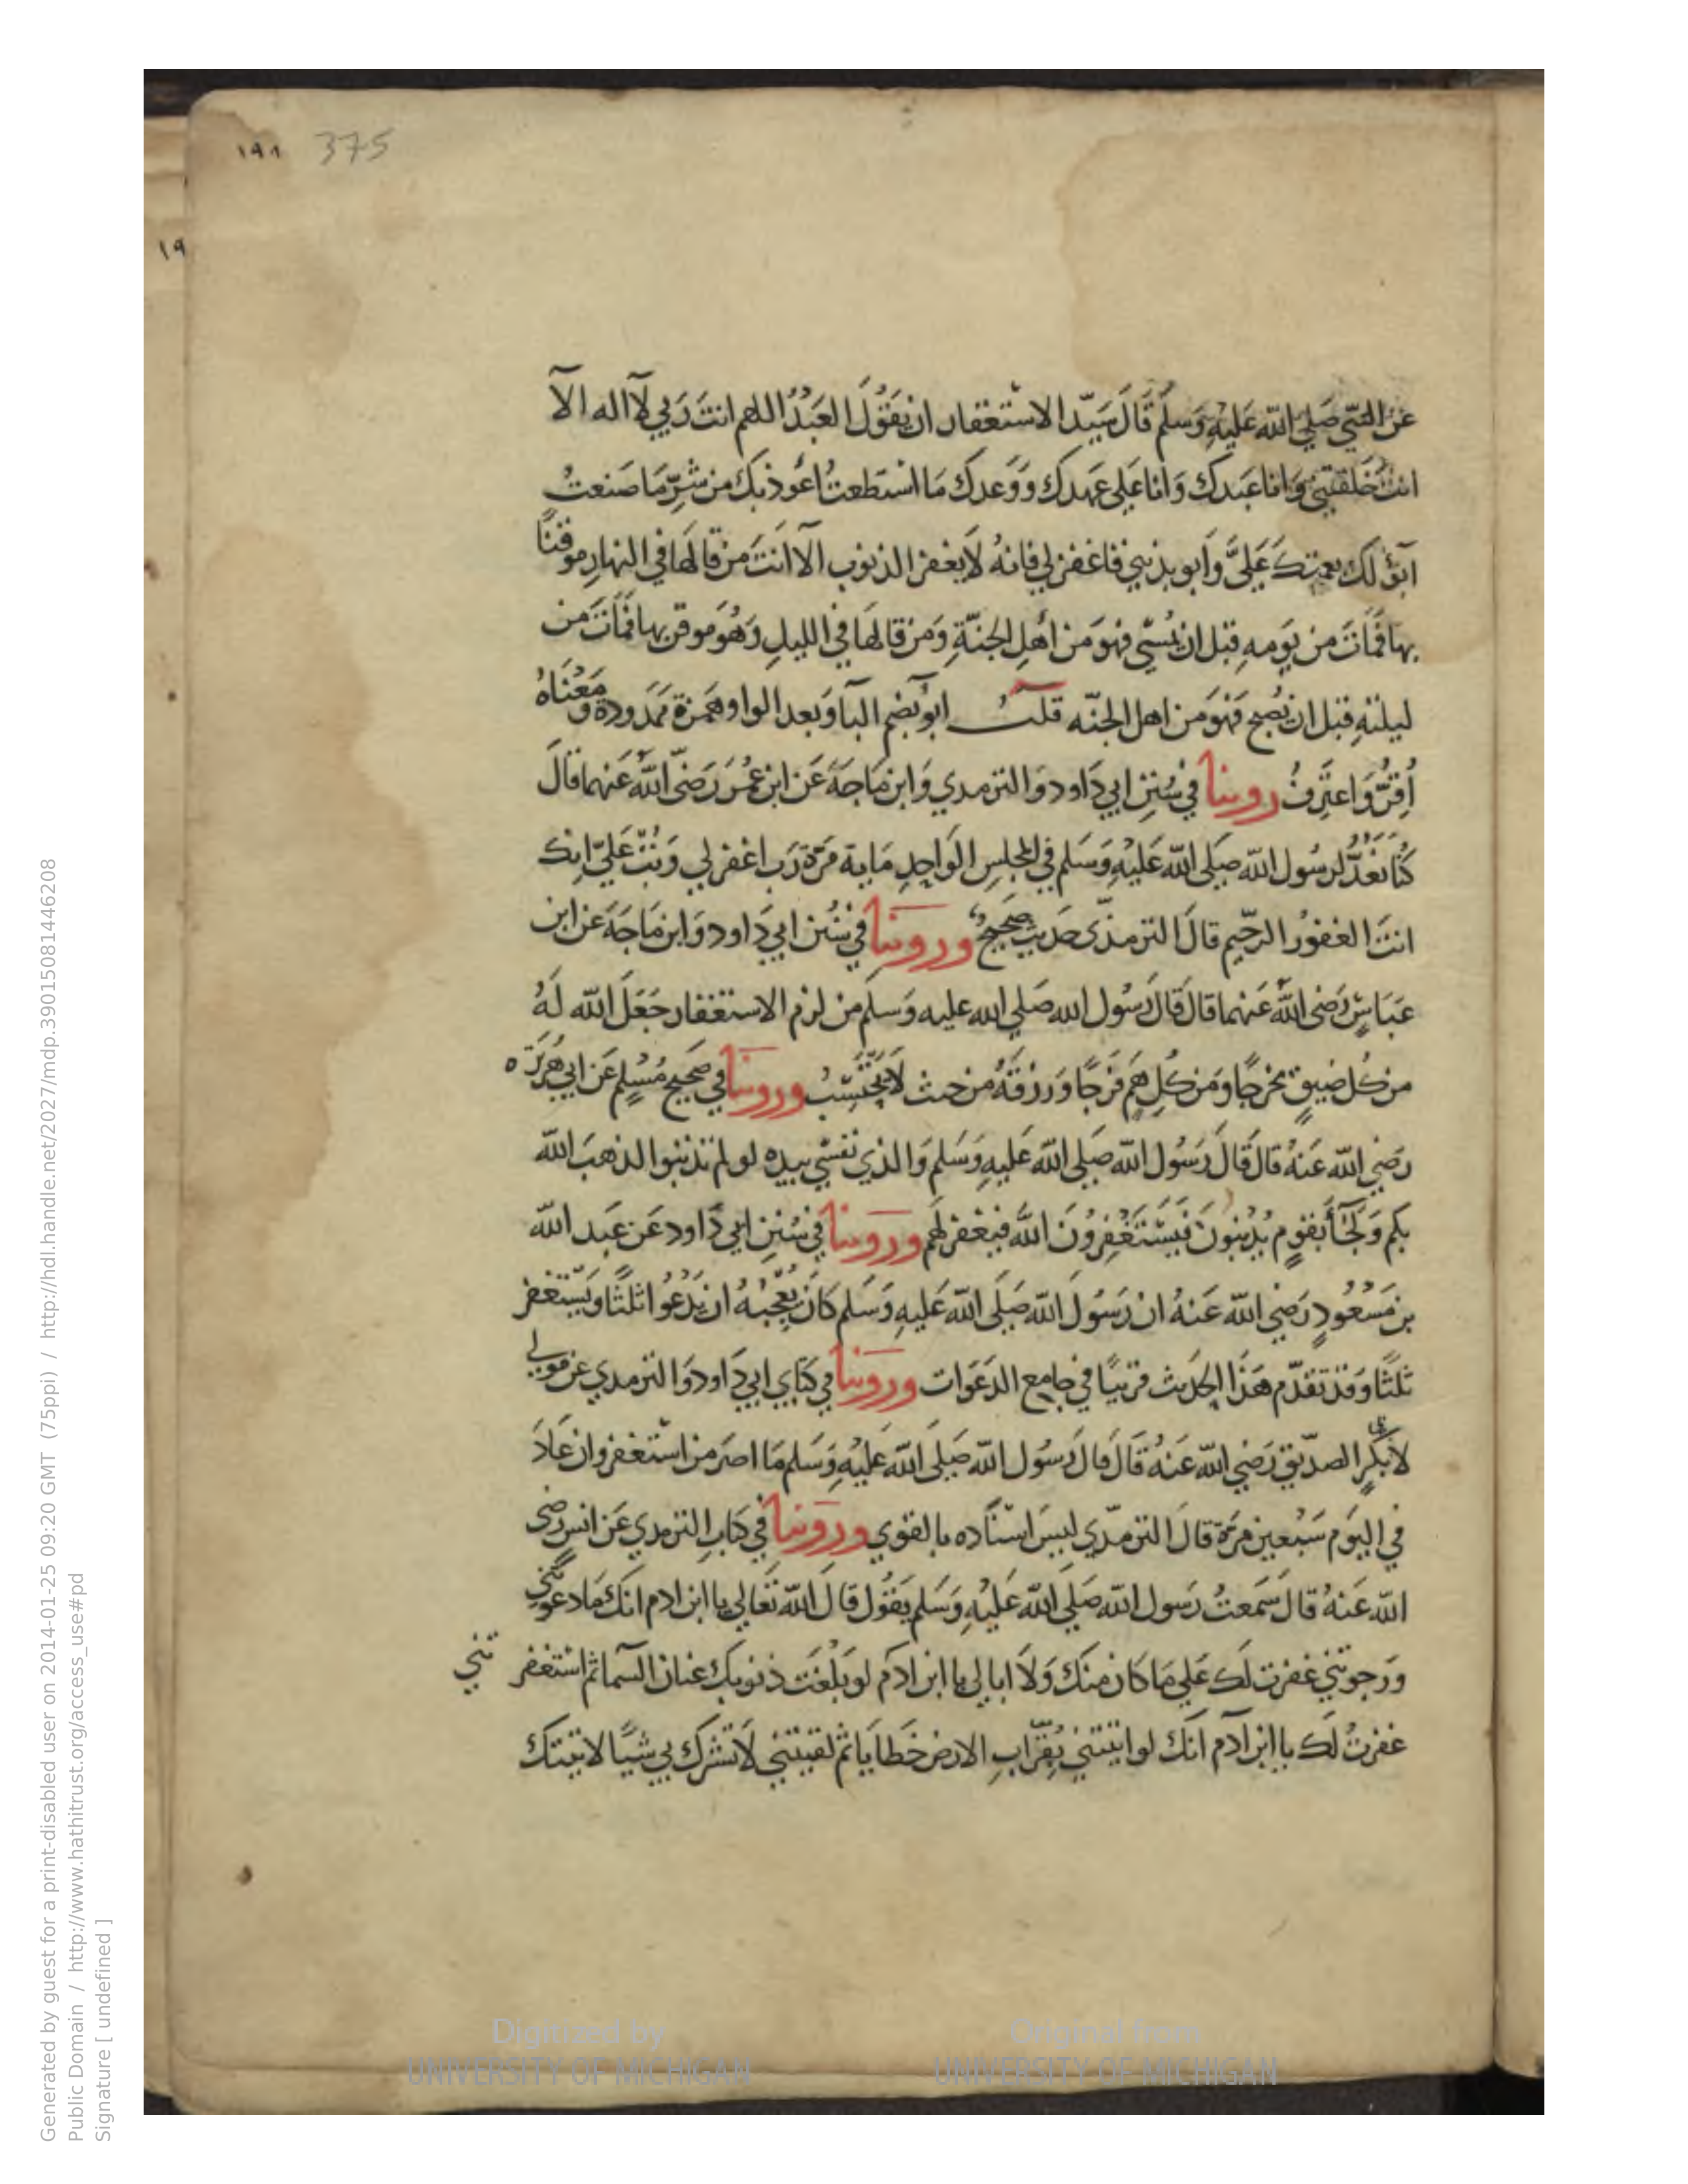 ١٩١ 375
١٩
عن النبي صَلي الله عَليهِ وَسلم قَالَ سَيّد الاسْتغفار ان يَقوُلَ العَبْدُ اللهم انتَ رَبي لآ اله الآ
انتَ خَلقتني وَانا عَبدك وَانا عَلى عَهدك وَوَعدك مَا اسْتَطعتُ اعُوذ بك من شرِّ مَا صَنعتُ
ابؤ لك بنعمتك عَليَّ وَابو بذنبي فاغفر لي فانهُ لاَ يغفر الذنوب الآ انتَ من قالهَا في النهارِ موقنًا
بها فمَاتَ من يَومهِ قبل ان يمُسْي فهوَ من اهْلِ الجنّةِ وَمن قالهَا في الليلِ وَهُوَ موقن بها فمَاتَ من
ليلتهِ قبل ان يُصبح فهَوَ من اهل الجنّه قلت ابوُ بضم البآ وَبعد الواو همزة ممَدودة وَمَعْنَاهُ
اُقِرُّ وَاعتَرِفُ روينا في سُنَنِ ابي دَاود وَالترمدي وَابن مَاجَةَ عَن ابن عُمَرَ رَضيَ اللهُ عَنهما قالَ
كُنا نعُدُّ لرسُول الله صَلى الله عَليْهِ وَسَلم في المجلسِ الوَاحِدِ مَاية مَرّة رَب اغفر لي وَتُبْ عَليّ انك
انتَ الغفورُ الرحّيم قالَ الترمذّى حَديث صَحيحٌ وروينا في سُنَن ابي دَاود وَابن مَاجَةَ عن ابن
عَبَاسٍ رَضى اللهُ عَنهما قالَ قَالَ رَسُول الله صَلي الله عليه وَسلم من لزم الاستغفار جَعَلَ الله لَهُ
من كل ضيقٍ مخرجًا وَمن كلِ همٍ فرَجًا وَرزقَهُ من حيث لاَ يحْتَسِبُ وروينا في صَحيح مُسْلِم عَن ابي هُرَيْرَه
رَضي الله عَنهُ قالَ قَالَ رَسُول الله صَلى الله عَليهِ وَسَلم وَالذي نفسْي بيده لو لم تذنبوا لذهبَ الله
بكم وَلجَآ بقومٍ يُذنِبُونَ فَيَسْتَغْفِرُونَ الله فيغفر لَهم وروينا في سُنَنِ ابي دَاود عَن عَبد الله
بن مَسْعُودٍ رَضي الله عَنهُ ان رَسُولَ الله صَلَى الله عَليهِ وَسَلم كانَ يُعْجبُهُ ان يَدْعُوا ثلثًا وَيَسْتغفر
ثلثًا وَقد تقدّم هَذَا الحَديث قريبًا في جَامِع الدَعَوات وروينا في كتابي ابي دَاود وَالترمدي عن مولى
لابى بكرٍ الصدّيق رَضي الله عَنهُ قَالَ قَالَ رَسُول الله صَلَى الله عَليْهِ وَسَلم مَا اصَر من اسْتغفر وان عَادَ
في اليَوم سَبْعين مَرّة قالَ الترمدّي ليسَ اسْنَاده بالقوي وروينا في كتابِ الترمدي عَن انس رضى
الله عَنهُ قالَ سَمعتُ رَسول الله صَلَى الله عَليْهِ وَسَلم يَقوُل قالَ الله تَعَالي يا ابن ادم انكَ مَا دعوتني
وَرَجوتني غفرت لك عَلي مَا كان منكَ وَلاَ ابالي يا ابن ادَم لو بَلغَت ذنوبك عنان السّما ثم اسْتغفر تني
غفرتُ لَك يا ابن آدم انك لو اتيتني بِقرَابِ الارض خَطايَا ثم لقيتني لاَ تشرك بي شيًا لاتيتك
Generated by guest for a print-disabled user on 2014-01-25 09:20 GMT (75ppi) / http://hdl.handle.net/2027/mdp.39015081446208
Public Domain / http://www.hathitrust.org/access_use#pd
Signature [ undefined ]
Digitized by
UNIVERSITY OF MICHIGAN
Original from
UNIVERSITY OF MICHIGAN